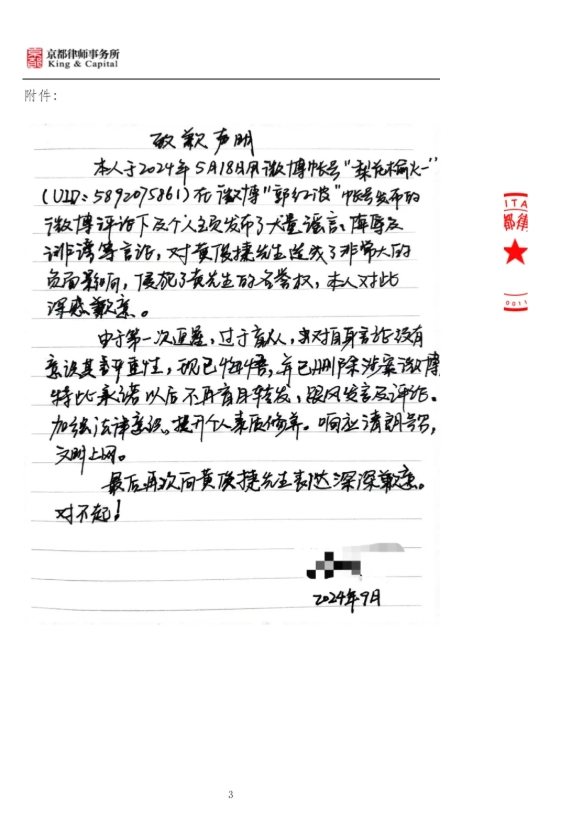 京都律师事务所
King & Capital
附件:
致歉声明
本人于2024年5月18日用微博帐号"梨花榆火一"
(UID:5892075861)在微博"郭红波"帐号发布的
微博评论下及个人主页发布了大量谣言、侮辱及
诽谤等言论,对黄俊捷先生造成了非常大的
负面影响,侵犯了黄先生的名誉权,本人对此
深感歉意。
由于第一次追星,过于盲从,未对自身言论没有
意识其严重性,现已悔悟,并已删除涉案微博
特此承诺以后不再盲目转发,跟风发言及评论。
加强法律意识。提升个人素质修养。响应清朗号召,
文明上网。
最后再次向黄俊捷先生表达深深歉意。
对不起!
2024年9月
ITA
都律
0011
3